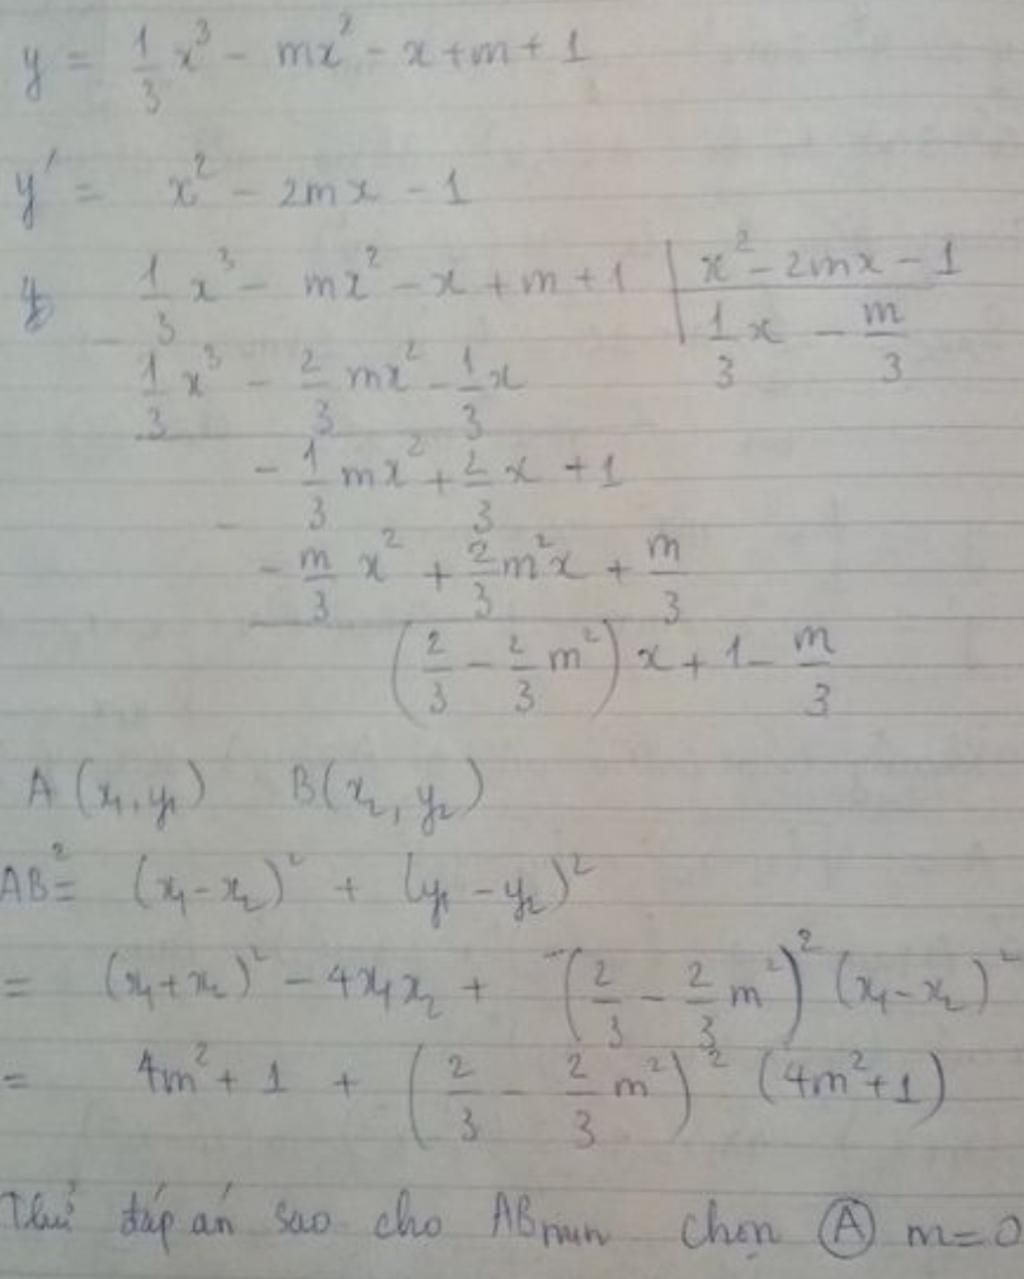 y = 1/3 x³ - mx² - x + m + 1
y' = x² - 2mx - 1
y 1/3 x³ - mx² - x + m + 1 | x² - 2mx - 1
- 1/3 x³ - 2/3 mx² - 1/3 x | 1/3 x - m/3
- 1/3 mx² + 2/3 x + 1
- - m/3 x² + 2/3 m²x + m/3
(2/3 - 2/3 m²) x + 1 - m/3
A (x₁, y₁) B(x₂, y₂)
AB² = (x₁ - x₂)² + (y₁ - y₂)²
= (x₁ + x₂)² - 4x₁x₂ + (2/3 - 2/3 m²)² (x₁ - x₂)²
= 4m² + 1 + (2/3 - 2/3 m²)² (4m² + 1)
Thử đáp án sao cho ABmin chọn Ⓐ m = 0